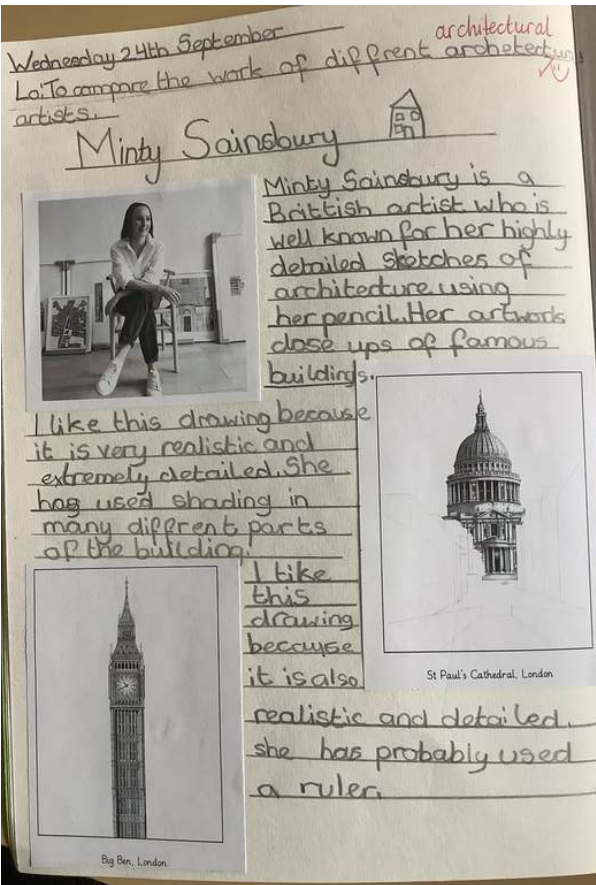 architectural
Wednesday 24th September
Lo:To compare the work of different archetectural
artists.
Minty Sainsbury
Minty Sainsbury is a
Brittish artist who is
well known for her highly
detailed sketches of
architecture using
her pencil. Her artwork
close ups of famous
buildings.
I like this drawing because
it is very realistic and
extremely detailed. She
has used shading in
many different parts
of the building.
I like
this
drawing
because
it is also
St Paul's Cathedral, London
realistic and detailed.
she has probably used
a ruler.
Big Ben, London